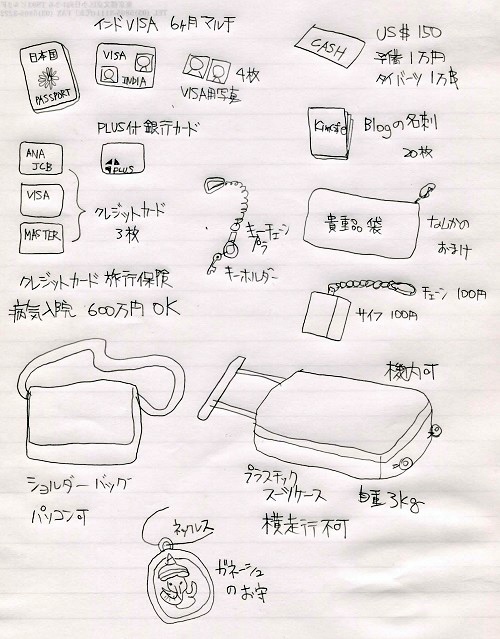 インドVISA 6ヶ月 マルチ
日本国
PASSPORT
VISA
INDIA
4枚
VISA用写真
CASH
US$ 150
予備 1万円
タイバーツ 1万B
PLUS付 銀行カード
PLUS
ANA
JCB
VISA
MASTER
クレジットカード
3枚
Blogの名刺
20枚
キーチェーン
プラ
キーホルダー
貴重品袋
なんかの
おまけ
チェーン 100円
サイフ 100円
クレジットカード 旅行保険
病気入院 600万円 OK
機内可
ショルダー バッグ
パソコン可
プラスチック
スーツケース
自重 3kg
横走行 不可
ネックレス
ガネーシュ
のお守